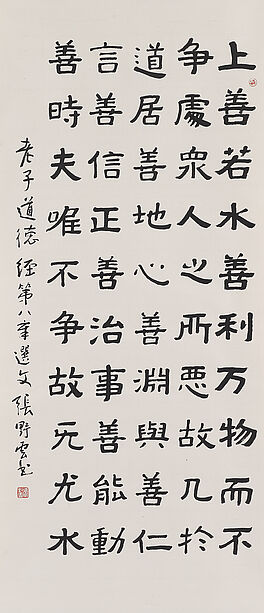 上善若水善利万物而不
争處衆人之所恶故几於
道居善地心善淵與善仁
言善信正善治事善能動
善時夫唯不争故无尤水
老子道德經第八章選文張野雲书